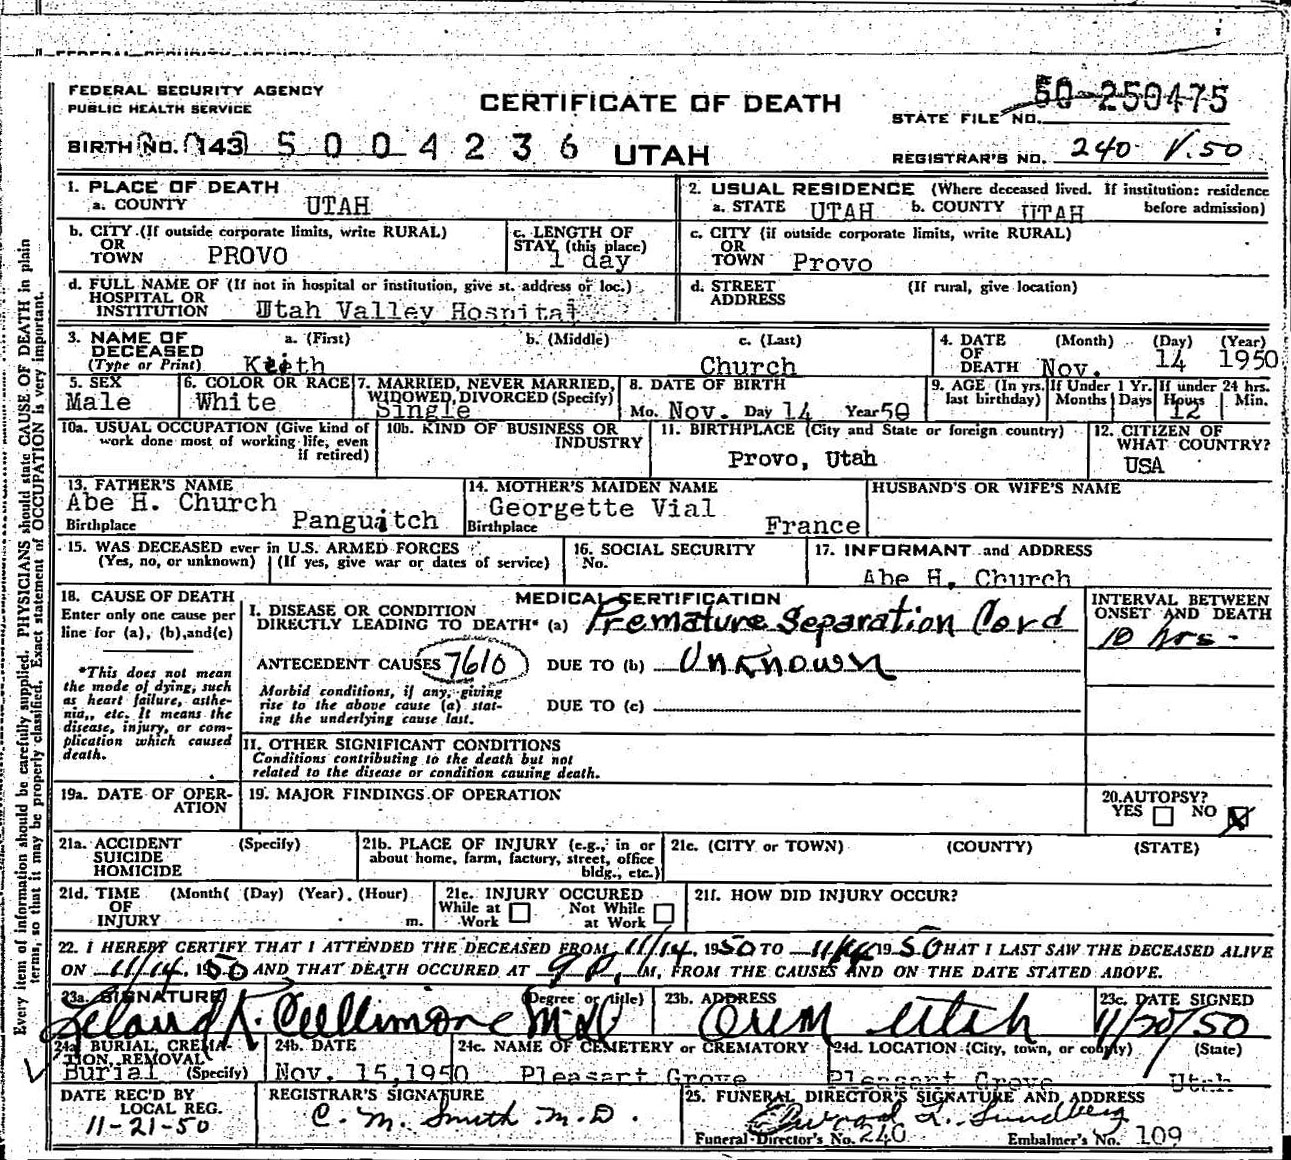 FEDERAL SECURITY AGENCY
PUBLIC HEALTH SERVICE
CERTIFICATE OF DEATH
STATE FILE NO. 50-250475
BIRTH NO. 143 5004236 UTAH
REGISTRAR'S NO. 240 V.50
1. PLACE OF DEATH
a. COUNTY UTAH
2. USUAL RESIDENCE (Where deceased lived. If institution: residence before admission)
a. STATE UTAH b. COUNTY UTAH
b. CITY (If outside corporate limits, write RURAL)
OR
TOWN PROVO
c. LENGTH OF
STAY (this place)
1 day
c. CITY (if outside corporate limits, write RURAL)
OR
TOWN Provo
d. FULL NAME OF (If not in hospital or institution, give st. address or loc.)
HOSPITAL OR
INSTITUTION Utah Valley Hospital
d. STREET (If rural, give location)
ADDRESS
3. NAME OF a. (First) b. (Middle) c. (Last)
DECEASED
(Type or Print) Keith Church
4. DATE (Month) (Day) (Year)
OF
DEATH Nov. 14 1950
5. SEX
Male
6. COLOR OR RACE
White
7. MARRIED, NEVER MARRIED,
WIDOWED, DIVORCED (Specify)
Single
8. DATE OF BIRTH
Mo. Nov. Day 14 Year 50
9. AGE (In yrs. last birthday)
If Under 1 Yr.
Months Days
If under 24 hrs.
Hours Min.
12
10a. USUAL OCCUPATION (Give kind of
work done most of working life, even
if retired)
10b. KIND OF BUSINESS OR
INDUSTRY
11. BIRTHPLACE (City and State or foreign country)
Provo, Utah
12. CITIZEN OF
WHAT COUNTRY?
USA
13. FATHER'S NAME
Abe H. Church
Birthplace Panguitch
14. MOTHER'S MAIDEN NAME
Georgette Vial
Birthplace France
HUSBAND'S OR WIFE'S NAME
15. WAS DECEASED ever in U.S. ARMED FORCES
(Yes, no, or unknown) (If yes, give war or dates of service)
16. SOCIAL SECURITY
No.
17. INFORMANT and ADDRESS
Abe H. Church
18. CAUSE OF DEATH
Enter only one cause per
line for (a), (b), and (c)
*This does not mean
the mode of dying, such
as heart failure, asthe-
nia,, etc. It means the
disease, injury, or com-
plication which caused
death.
MEDICAL CERTIFICATION
I. DISEASE OR CONDITION
DIRECTLY LEADING TO DEATH* (a) Premature Separation Cord
ANTECEDENT CAUSES 7610 DUE TO (b) Unknown
Morbid conditions, if any, giving
rise to the above cause (a) stat-
ing the underlying cause last.
DUE TO (c)
INTERVAL BETWEEN
ONSET AND DEATH
10 hrs-
II. OTHER SIGNIFICANT CONDITIONS
Conditions contributing to the death but not
related to the disease or condition causing death.
19a. DATE OF OPER-
ATION
19. MAJOR FINDINGS OF OPERATION
20. AUTOPSY?
YES NO
21a. ACCIDENT (Specify)
SUICIDE
HOMICIDE
21b. PLACE OF INJURY (e.g., in or
about home, farm, factory, street, office
bldg., etc.)
21c. (CITY or TOWN) (COUNTY) (STATE)
21d. TIME (Month( (Day) (Year) (Hour)
OF
INJURY m.
21e. INJURY OCCURED
While at Work Not While at Work
21f. HOW DID INJURY OCCUR?
22. I HEREBY CERTIFY THAT I ATTENDED THE DECEASED FROM 11/14, 1950 TO 11/14 1950 HAT I LAST SAW THE DECEASED ALIVE
ON 11/14, 1950 AND THAT DEATH OCCURED AT 9 P. M, FROM THE CAUSES AND ON THE DATE STATED ABOVE.
23a. SIGNATURE (Degree or title)
Leland K. Cullimore M.D
23b. ADDRESS
Orem Utah
23c. DATE SIGNED
11/20/50
24a. BURIAL, CREMA-
TION, REMOVAL
Burial (Specify)
24b. DATE
Nov. 15, 1950
24c. NAME OF CEMETERY or CREMATORY
Pleasant Grove
24d. LOCATION (City, town, or county) (State)
Pleasant Grove Utah
DATE REC'D BY
LOCAL REG.
11-21-50
REGISTRAR'S SIGNATURE
C. M. Smith M.D.
25. FUNERAL DIRECTOR'S SIGNATURE AND ADDRESS
L. Sundberg
Funeral Director's No. 240 Embalmer's No. 109
Every item of information should be carefully supplied. PHYSICIANS should state CAUSE OF DEATH in plain
terms, so that it may be properly classified. Exact statement of OCCUPATION is very important.